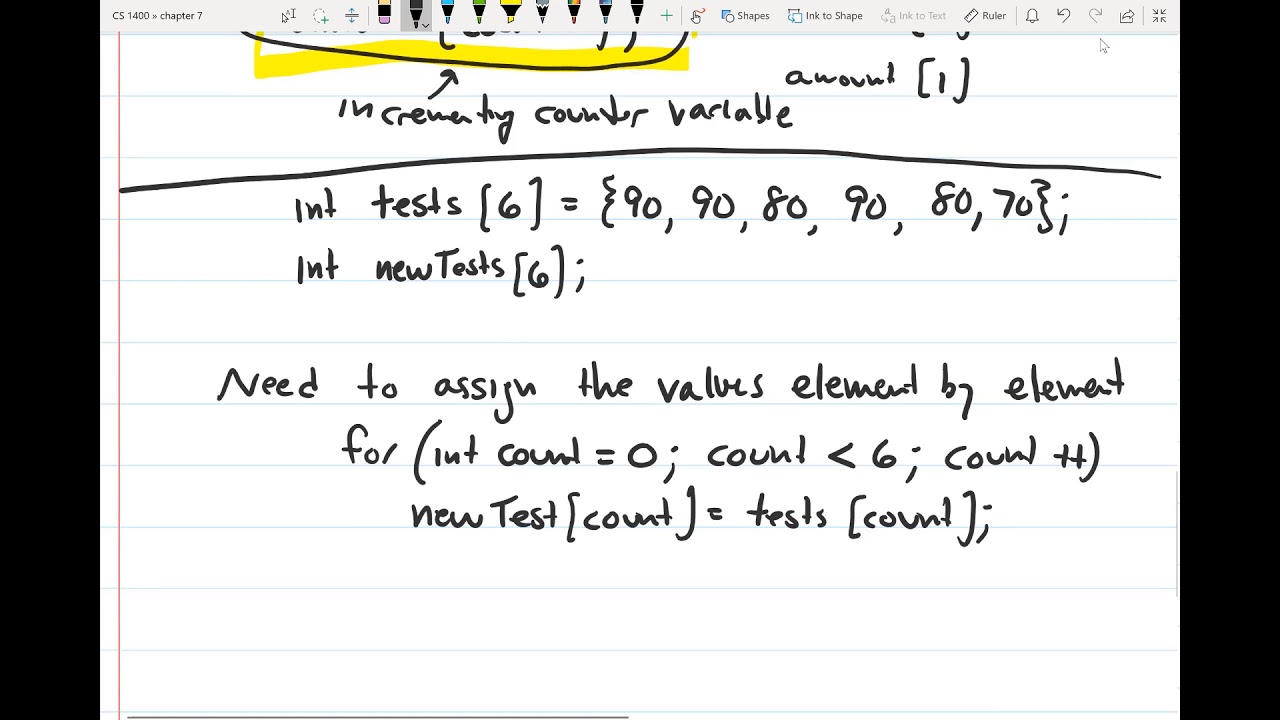 CS 1400 » chapter 7
Shapes
Ink to Shape
Ink to Text
Ruler
amount [1]
incrementing counter variable
int tests [6] = {90, 90, 80, 90, 80, 70};
int newTests[6];
Need to assign the values element by element
for (int count = 0; count < 6; count ++)
newTest[count] = tests [count];